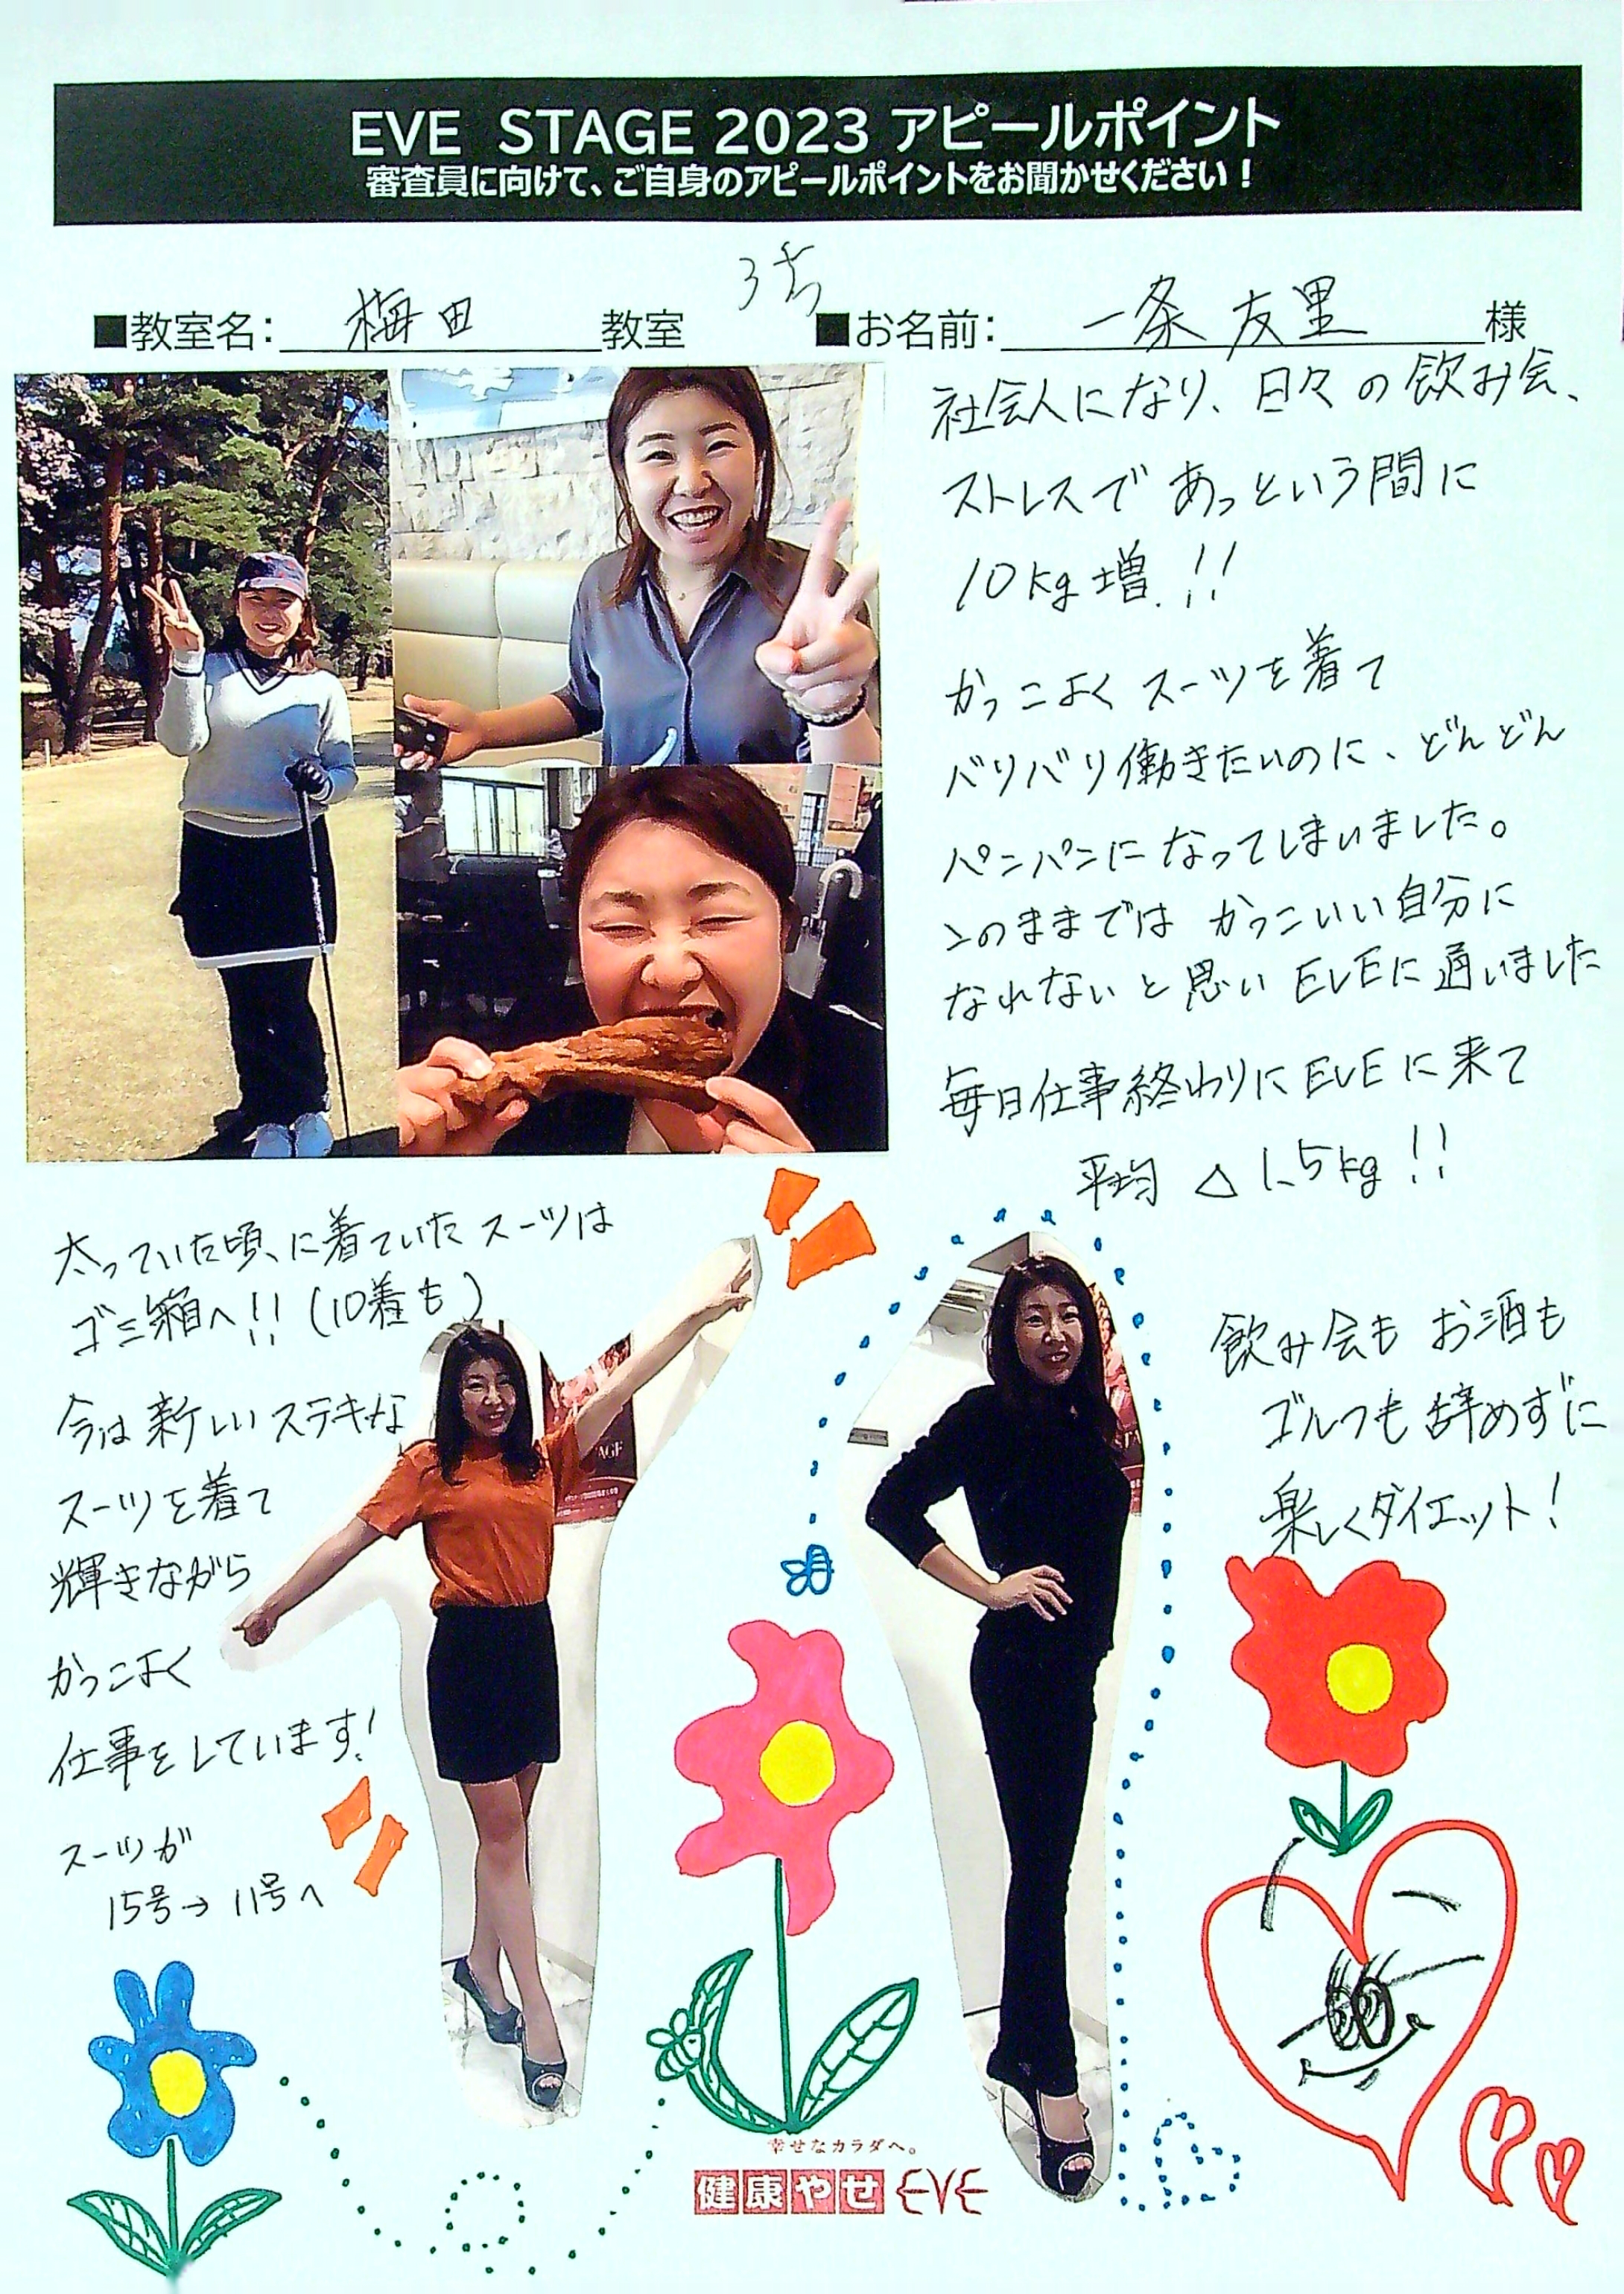 EVE STAGE 2023 アピールポイント
審査員に向けて、ご自身のアピールポイントをお聞かせください！
■教室名：梅田教室
■お名前：一条 友里 様
社会人になり、日々の飲み会、
ストレスであっという間に
10kg増!!
かっこよくスーツを着て
バリバリ働きたいのに、どんどん
パンパンになってしまいました。
このままではかっこいい自分に
なれないと思いEVEに通いました
毎日仕事終わりにEVEに来て
平均 △1.5kg!!
太っていた頃に着ていたスーツは
ゴミ箱へ!!(10着も)
今は新しいステキな
スーツを着て
輝きながら
かっこよく
仕事をしています!
スーツが
15号→11号へ
飲み会もお酒も
ゴルフも辞めずに
楽しくダイエット!
幸せなカラダへ。
健康やせ EVE